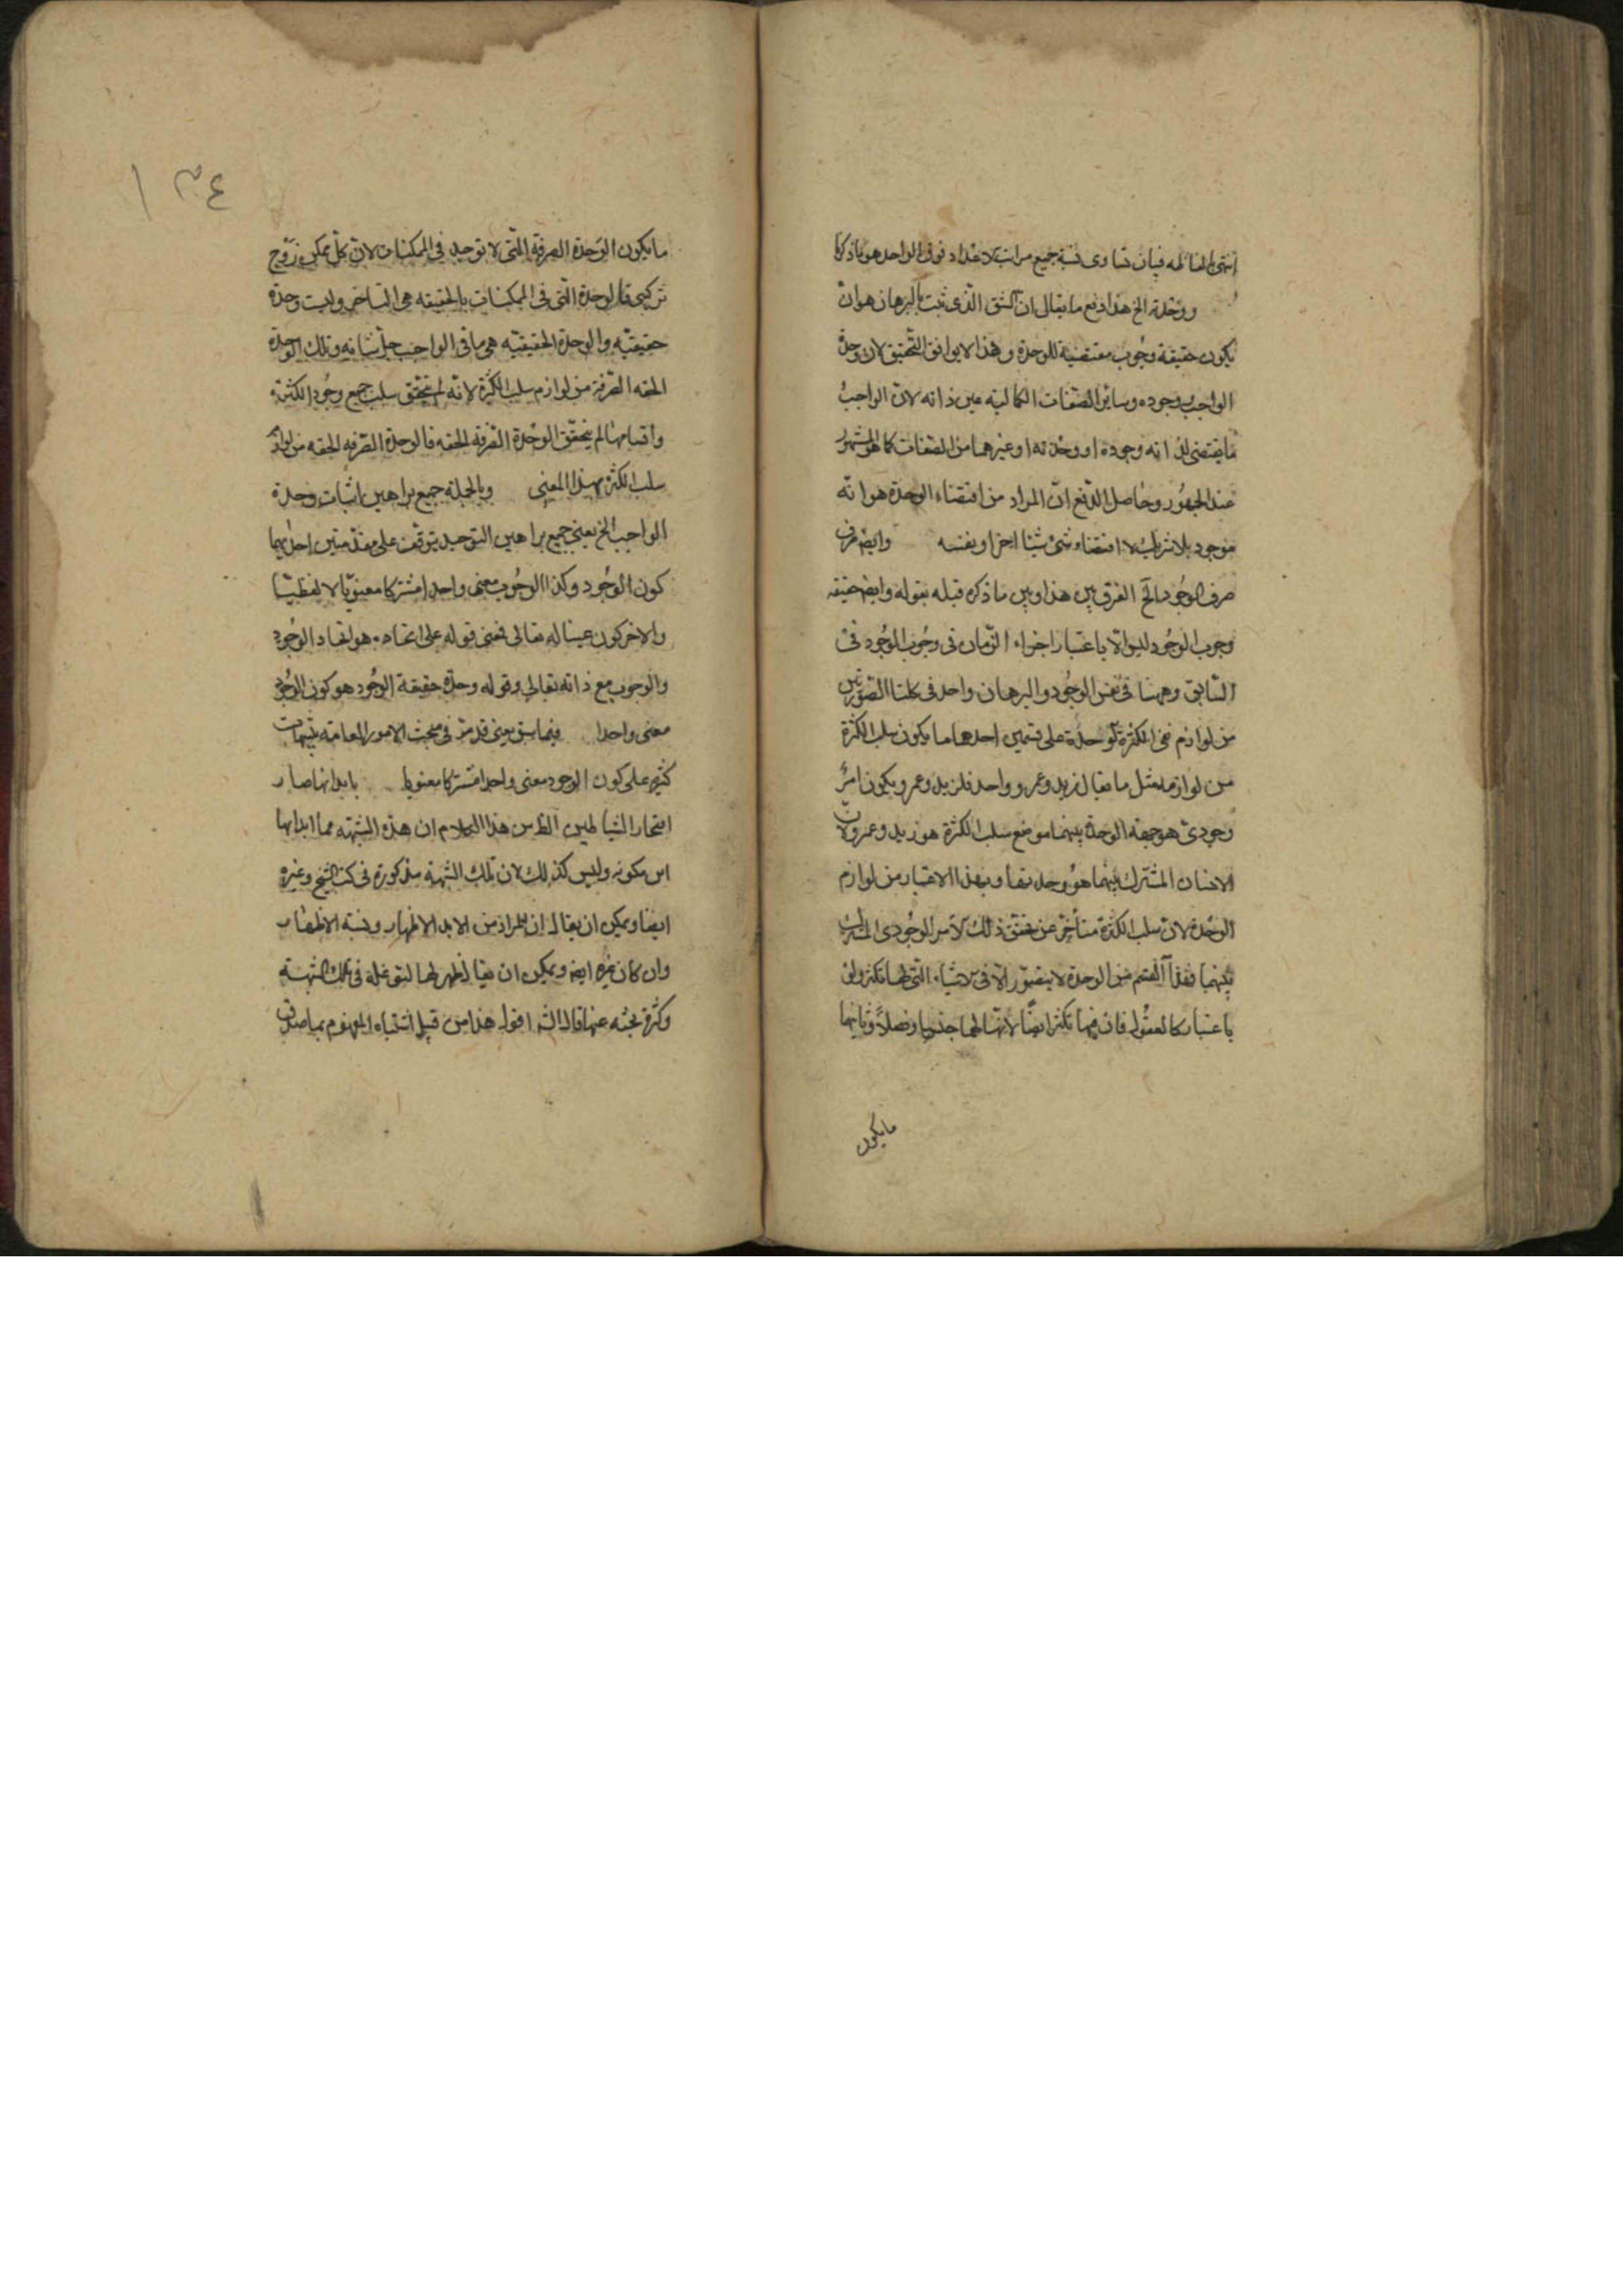 انتهى بالفاظه فبان تساوى نسبة جميع مراتب الاعداد فوق الواحد هو ما ذكرنا
ووحدته الخ هذا دفع ما يقال ان الشق الذى ثبت بالبرهان هو ان
يكون حقيقة وجوب مقتضية للوحدة وهذا لا يوافق التحقيق لان وحدة
الواجب ووجوده وسائر الصفات الكمالية عين ذاته لان الواجب
ما يقتضى لذاته وجوده او وحدته او غيرهما من الصفات كما هو المشهور
عند الجمهور وحاصل الدفع ان المراد من اقتضاء الوحدة هو انه
موجود بلا شريك لا اقتضاء شئ شيئا اخر او نفسه وايضا صرف
صرف الوجود الخ الفرق بين هذا وبين ما ذكره قبله بقوله وايضا حقيقة
وجوب الوجود ليس الا باعتبار اجراء البرهان فى وجوب الوجود فى
السابق وههنا فى نفس الوجود والبرهان واحد فى كلتا الصورتين
من لوازم نفى الكثرة الوحدة على قسمين احدهما ما يكون سلب الكثرة
من لوازمه مثل ما يقال زيد وعمرو واحد فلزيد وعمرو يكون امر
وجودى هو جهة الوحدة بينهما موضع سلب الكثرة هو زيد وعمرو لان
الانسان المشترك بينهما هو وحدتهما وبهذا الاعتبار من لوازم
الوحدة لان سلب الكثرة متأخر عن تحقق ذلك الامر الوجودى المشترك
بينهما فهذا القسم من الوحدة لا يتصور الا فى الاشياء التى لها تكثر ولو
باعتبار كالعقول فان فيها تكثرا ايضا لانها لها جنسا وفصلا وثانيهما
مايكون
١٣٤
ما يكون الوحدة الصرفة التى لا توجد فى الممكنات لان كل ممكن زوج
تركيبى فالوحدة التى فى الممكنات بالحقيقه هى التاحد وليست وحدة
حقيقية والوحدة الحقيقية هى ما فى الواجب جل شانه وتلك الوحدة
الحقه الصرفة من لوازم سلب الكثرة لانه لم يتحقق سلب جميع وجود الكثرة
واقسامها لم يتحقق الوحدة الصرفة الحقه فالوحدة الصرفه الحقه من لوازم
سلب الكثرة بهذا المعنى وبالجملة جميع براهين اثبات وحدة
الواجب الخ يعنى جميع براهين التوحيد يتوقف على مقدمتين احدهما
كون الوجود وكذا الوجوب بمعنى واحد مشتركا معنويا لا لفظيا
والاخر كون عينا له تعالى فمعنى قوله على اتحاده هو اتحاد الوجود
والوجوب مع ذاته تعالى وقوله وحدة حقيقة الوجود هو كون الوجود
معنى واحدا فيما سبق يعنى قد مر فى مبحث الامور العامة تنبيهات
كثيره على كون الوجود معنى واحدا مشتركا معنويا بابدائها صار
افتخار الشياطين الظ من هذا الكلام ان هذه الشبهة مما ابداها
ابن كمونه وليس كذلك لان تلك الشبهة مذكورة فى كتب الشيخ وغيره
ايضا ويمكن ان يقال ان المراد من الابداء الاظهار ونسبة الاظهار
وان كان غيره ايضا ويمكن ان يقال اظهر لها لتوغله فى تلك الشبهة
وكثرة بحثه عنها قال الش اقول هذا من قبيل اشتباه المفهوم بما صدق